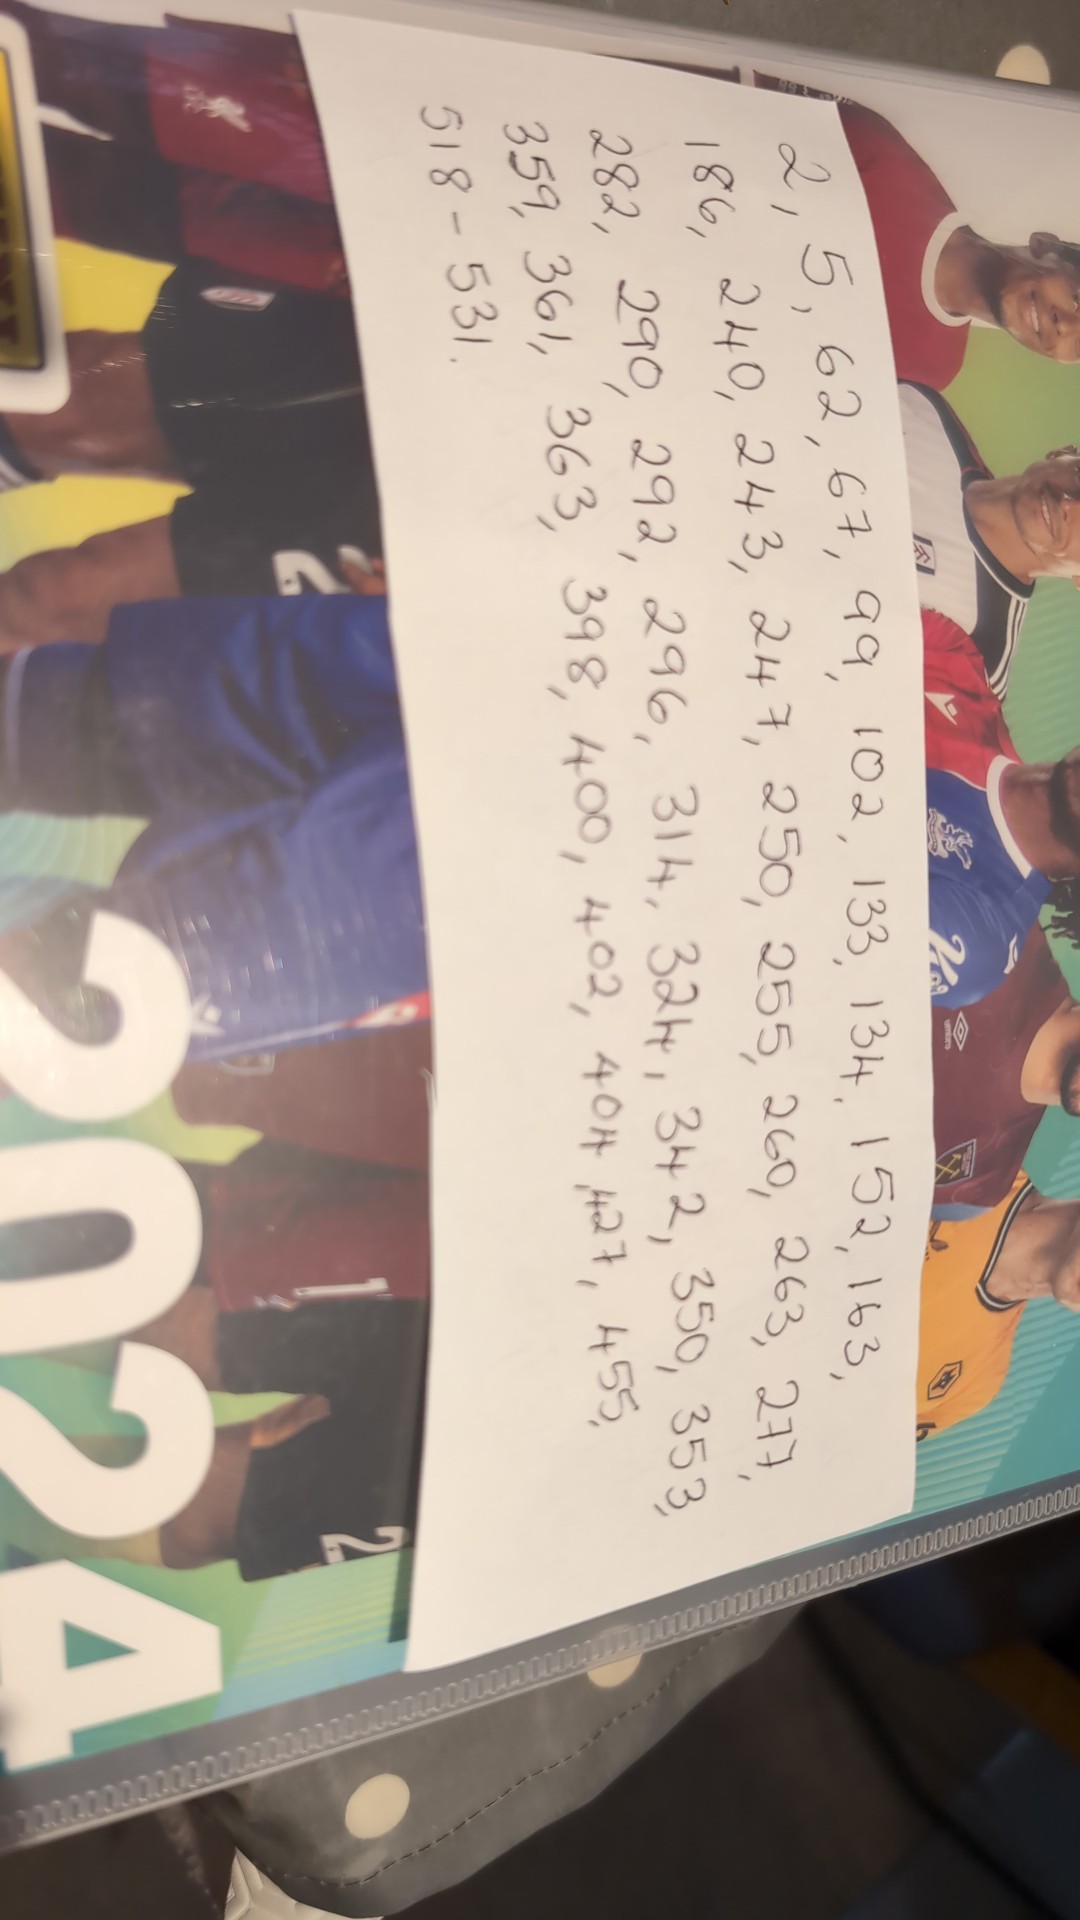 2, 5, 62, 67, 99, 102, 133, 134, 152, 163,
186, 240, 243, 247, 250, 255, 260, 263, 277,
282, 290, 292, 296, 314, 324, 342, 350, 353,
359, 361, 363, 398, 400, 402, 404, 427, 455,
518 - 531.
2024
2
1
2
umbro